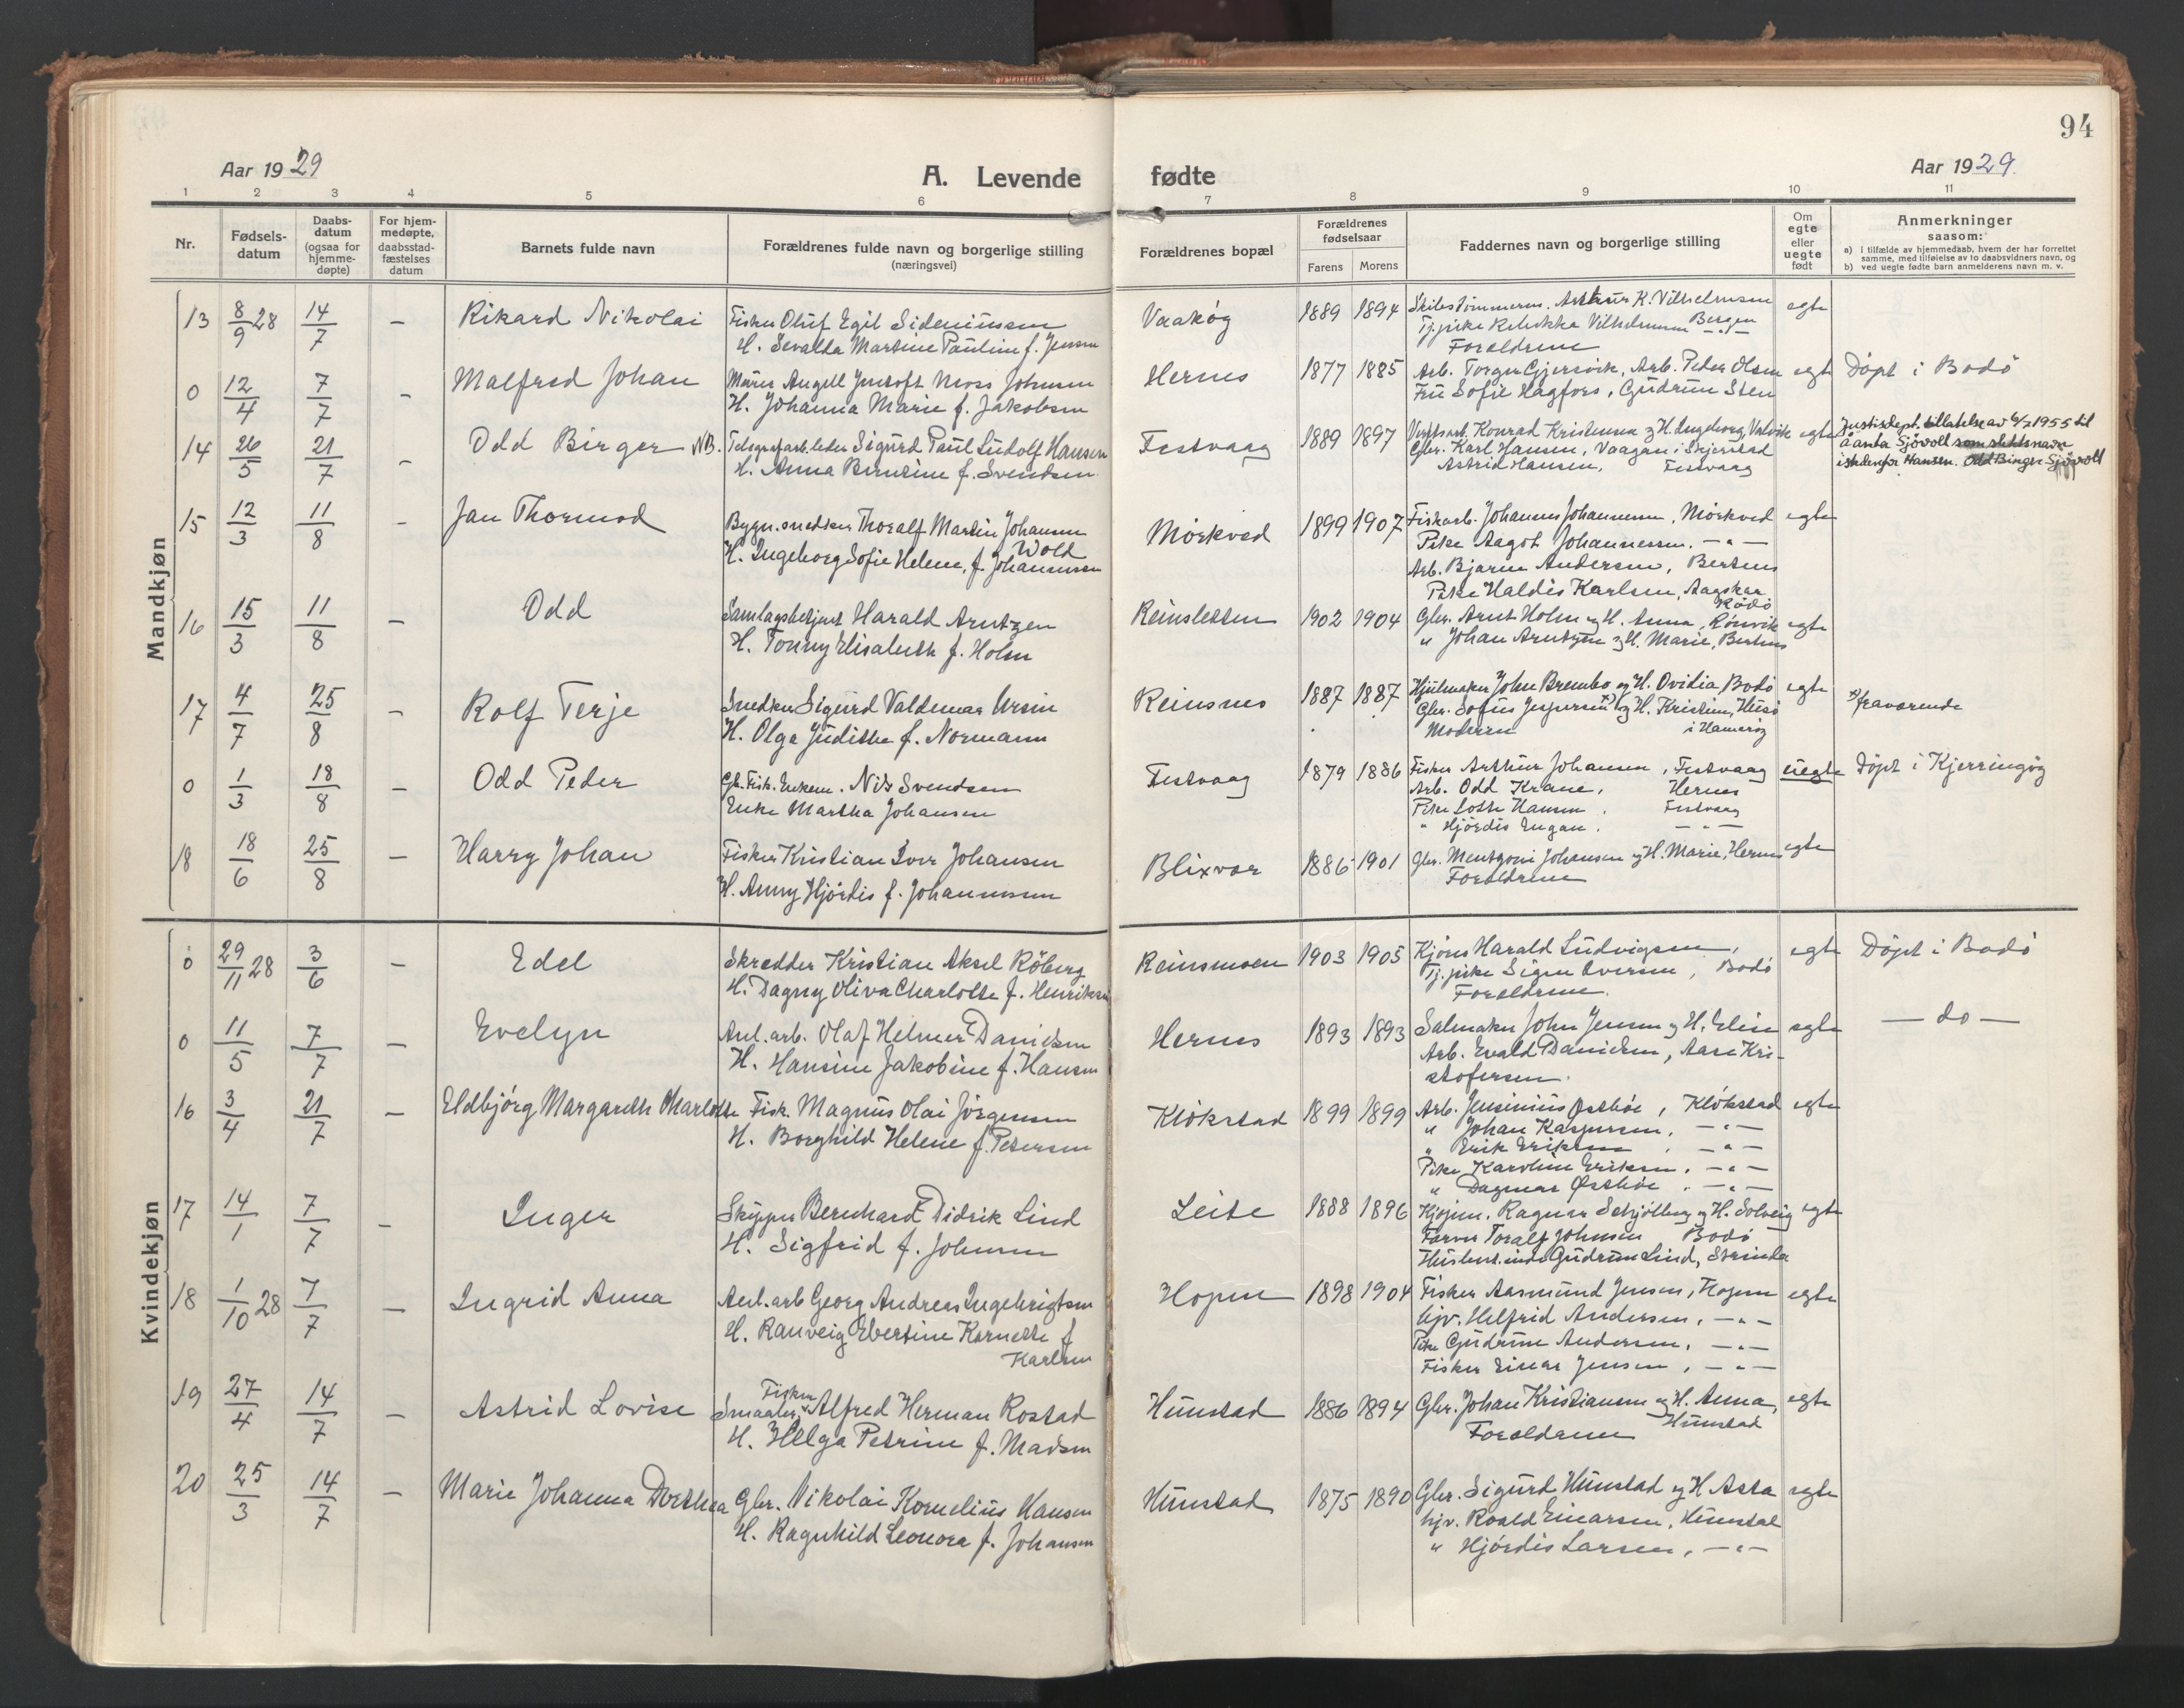 94
Aar 1929
A. Levende
fødte
Aar 1929.
1 2 3 4 5 6 7 8 9 10 11
Nr.
Fødsels-
datum
Daabs-
datum
(ogsaa for
hjemme-
døpte)
For hjem-
medøpte,
daabsstad-
fæstelses
datum
Barnets fulde navn
Forældrenes fulde navn og borgerlige stilling
(næringsvei)
Forældrenes bopæl
Forældrenes
fødselsaar
Farens Morens
Faddernes navn og borgerlige stilling
Om
egte
eller
uegte
født
Anmerkninger
saasom:
a) i tilfælde av hjemmedaab, hvem der har forrettet
samme, med tilføielse av to daabsvidners navn, og
b) ved uegte fødte barn anmelderens navn m. v.
Mandkjøn
13 8/9 28 14/7 – Rikard Nikolai Fisker Oluf Egil Sideniussen Vaakøg 1889 1894 Skibstømmerm. Arthur K. Vilhelmsen egte
H. Sevalda Martine Pauline f. Jensen Tj.pike Rebekka Vilhelmsen Bergen
Forældrene
0 12/4 7/7 – Malfred Johan Murer Angell Jentoft Moss Johnsen Hernes 1877 1885 Arb. Torger Gjersvik, Arb. Peder Olsen egte Døpt i Bodø
H. Johanna Marie f. Jakobsen Fru Sofie Hagfors, Gudrun Sten
14 26/5 21/7 – Odd Birger NB. Telegrafarb.leder Sigurd Paul Ludolf Hansen Festvaag 1889 1897 Konrad Kristensen og H. Ingeborg, Valvik egte Justisdept. tillatelse av 6/7 1955 til
H. Anna Berntine f. Svendsen Gbr. Karl Hansen, Vaagan i Skjerstad å anta Sjøvoll som slektsnavn
Astrid Hansen, Festvaag istedenfor Hansen. Odd Birger Sjøvoll
15 12/3 11/8 – Jan Thormod Bygn.snedker Thoralf Martin Johansen Mørkved 1899 1907 Fiskarb. Johannes Johannessen, Mørkved egte
Wold Pike Aagot Johannessen. – " –
H. Ingeborg Sofie Helene, f. Johannessen Arb. Bjarne Andersen, Bertnes
Pike Haldis Karlsen, Aagskar
Rødø
16 15/3 11/8 – Odd Samlagsbetjent Harald Arntzen Reinsletten 1902 1904 Gbr. Arnt Holm og H. Anna, Rønvik egte
H. Tonny Elisabeth f. Holm " Johan Arntzen og H. Marie, Bertnes
17 4/7 25/8 – Rolf Terje Snedker Sigurd Valdemar Ursin Reinsnes 1887 1887 Hjulmaker John Brembo og H. Ovidia, Bodø egte x) fraværende
H. Olga Judithe f. Normann Gbr. Sofus Jespersen x) og H. Kristine, Husø
Moderen i Hamarøy
0 1/3 18/8 – Odd Peder Gb. Fisk. Enkem. Nils Svendsen Festvaag 1879 1886 Fisker Arthur Johansen, Festvaag uegte Døpt i Kjerringøy
Enke Martha Johansen Arb. Odd Krane, Hernes
Pike Lotte Hansen, Festvaag
" Hjørdis Engan. – " –
18 18/6 25/8 – Harry Johan Fisker Kristian Iver Johansen Blixvær 1886 1901 Gbr. Mentzoni Johansen og H. Marie, Hernes egte
H. Anny Hjørdis f. Johannessen Forældrene
Kvindekjøn
0 29/11 28 3/6 – Edel Skrædder Kristian Aksel Røberg Reinsmoen 1903 1905 Harald Ludvigsen, egte Døpt i Bodø
H. Dagny Oliva Charlotte f. Henriksen Tj.pike Signe Iversen, Bodø
Forældrene.
0 11/5 7/7 – Evelyn Anl.arb. Olaf Helmer Danielsen Hernes 1893 1893 Salmaker John Jensen og H. Elise egte – do –
H. Hansine Jakobine f. Hansen Arb. Evald Danielsen, Aase Kri-
stofersen.
16 3/4 21/7 – Eldbjørg Margareth Charlotte Fisk. Magnus Olai Jørgensen Kløkstad 1899 1899 Arb. Jensinius Østhøe, Kløkstad egte
H. Borghild Helene f. Petersen " Johan Kaspersen, – " –
" Erik Eriksen, – " –
Pike Karoline Eriksen, – " –
" Dagmar Østhøe, – " –
17 14/1 7/7 – Inger Skipper Bernhard Didrik Lind Leite 1888 1896 Kjøpm. Ragnar Schjølberg og H. Solveig egte
H. Sigfrid f. Johnsen Farver Toralf Johnsen Bodø
Gudrun Lind, Strinda
18 1/10 28 7/7 – Ingrid Anna Anl.arb Georg Andreas Ingebrigtsen Hopen 1898 1904 Fisker Aasmund Jensen, Hopen egte
H. Ranveig Ebertine Kornelle f. hjv. Helfrid Andersen, – " –
Karlsen Pike Gudrun Andersen, – " –
Fisker Einar Jensen, – " –
19 27/4 14/7 – Astrid Lovise Fisker
Smaabr. Alfred Herman Rostad Hunstad 1886 1894 Gbr. Johan Kristiansen og H. Anna, egte
H. Helga Petrine f. Madsen Hunstad
Forældrene
20 25/3 14/7 – Marie Johanna Dorthea Gbr. Nikolai Kornelius Hansen Hunstad 1875 1890 Gbr. Sigurd Hunstad og H Asta egte
H. Ragnhild Leonora f. Johansen hjv. Roald Einarsen, Hunstad
" Hjørdis Larsen, – " –